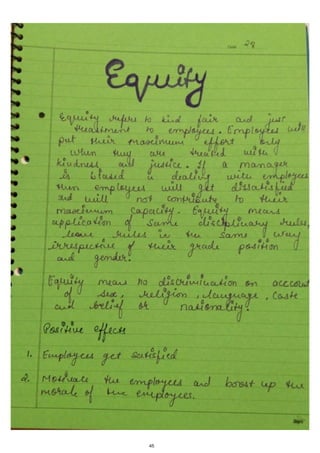 Date 28
Equity
Equity refers to kind fair and just
treatment to employees. Employees will
put their maximum effort only
when they are treated with
kindness and justice. If a manager
is biased in dealing with employees
then employees will get dissatisfied
and will not contribute to their
maximum capacity. Equity means
application of same disciplinary rules,
leave rules in the same way
irrespective of their grade position
and gender.
Equity means no discrimination on account
of sex, religion, language, caste
and belief or nationality.
Positive effects
1. Employees get satisfied
2. Motivate the employees and boost up the
morale of the employees.
45